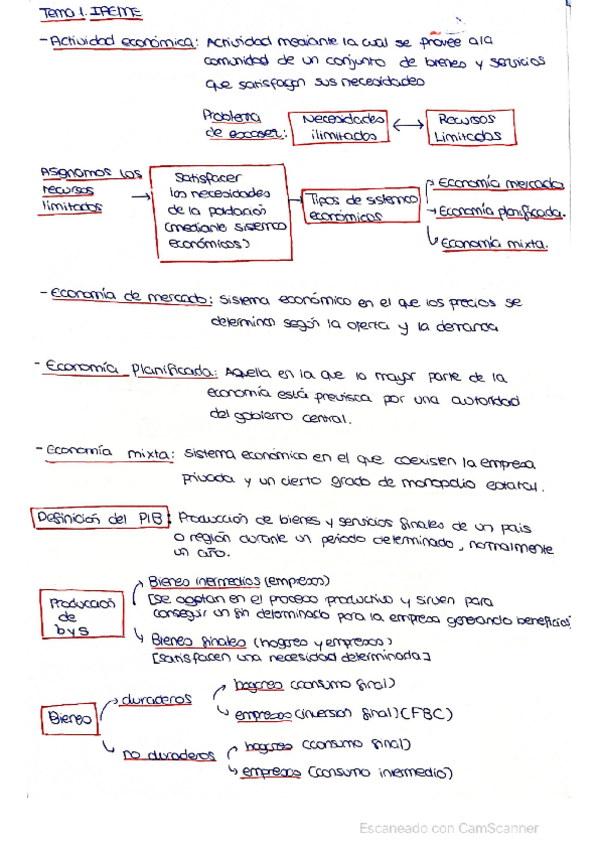 Tema 1. IPEME
- Actividad económica: Actividad mediante la cual se provee a la
comunidad de un conjunto de bienes y servicios
que satisfagan sus necesidades
Problema de escasez: Necesidades ilimitadas ↔ Recursos Limitados
Asignamos los recursos limitados → Satisfacer las necesidades de la población (mediante sistema económicos) → Tipos de sistema económicos
Economía mercado
Economía planificada.
Economía mixta.
- Economía de mercado: Sistema económico en el que los precios se
determinan según la oferta y la demanda
- Economía planificada: Aquella en la que la mayor parte de la
economía está prevista por una autoridad
del gobierno central.
- Economía mixta: Sistema económico en el que coexisten la empresa
privada y un cierto grado de monopolio estatal.
Definición del PIB: Producción de bienes y servicios finales de un país
o región durante un periodo determinado, normalmente
un año.
Producción de b y s
Bienes inermedios (empresas)
[Se agotan en el proceso productivo y sirven para
conseguir un fin determinado para la empresa generando beneficios]
Bienes finales (hogares y empresas)
[satisfacen una necesidad determinada]
Bienes
duraderos
hogares (consumo final)
empresas (inversion final) (FBC)
no duraderos
hogares (consumo final)
empresas (consumo inermedio)
Escaneado con CamScanner